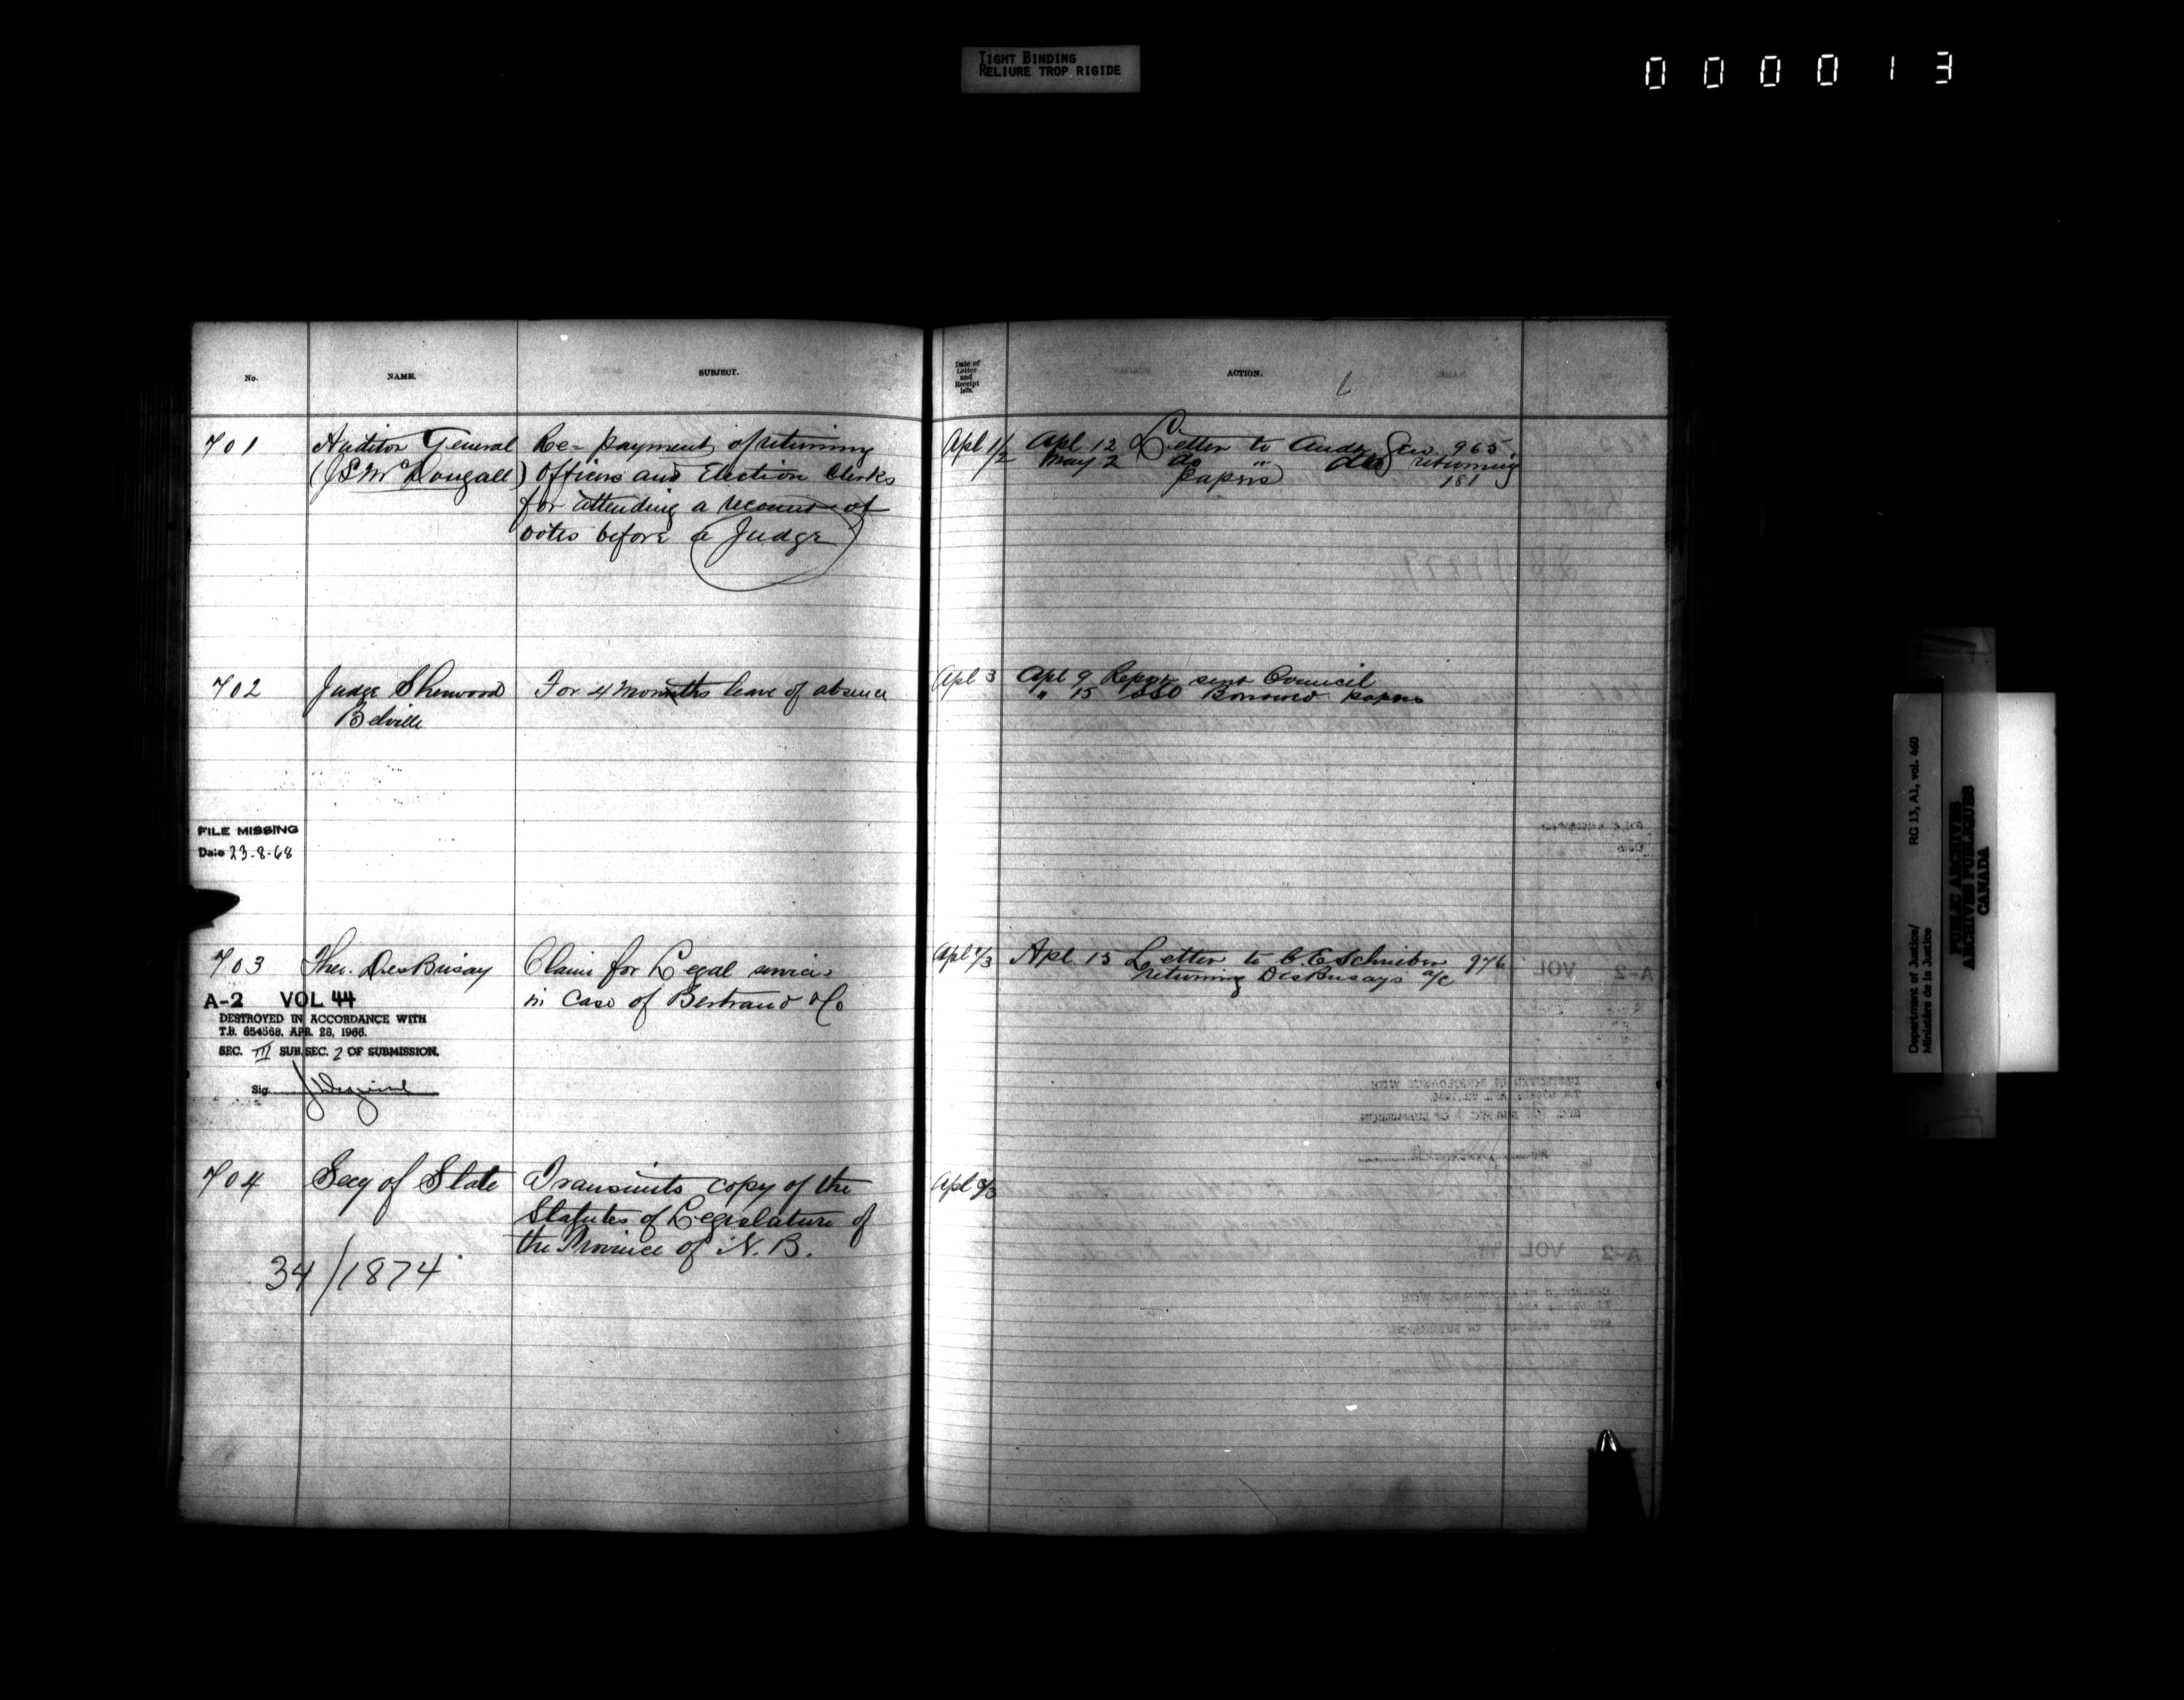 TIGHT BINDING
RELIURE TROP RIGIDE
000013
No.
NAME.
SUBJECT.
Date of
Letter
and
Receipt
ACTION.
701
Auditor General
(J L McDougall)
Re- payment of returning
Officers and Election Clerks
for attending a recount of
votes before a Judge
Apl 1/2
Apl 12 Letter to Audr Gen. 965
May 2 do " do returning
papers 181
702
Judge Sherwood
Belville
For 4 months leave of absence
Apl 3
Apl 9 Report sent Council
" 15 Borrowed papers
FILE MISSING
Date 23-8-68
703
Theo. DesBrisay
Claim for Legal services
in case of Bertrand & Co
Apl 2/3
Apl 15 Letter to C. E Schrieber 976
returning DesBrisays a/c
A-2 VOL 44
DESTROYED IN ACCORDANCE WITH
T.B. 654568, APR. 28, 1966.
SEC. III SUB.SEC. 2 OF SUBMISSION.
Sig.
704
Secy of State
Transmits copy of the
Statutes of Legislature of
the Province of N. B.
Apl 3/3
34/1874
Department of Justice/
Ministère de la Justice
RG 13, A1, vol. 460
PUBLIC ARCHIVES
ARCHIVES PUBLIQUES
CANADA